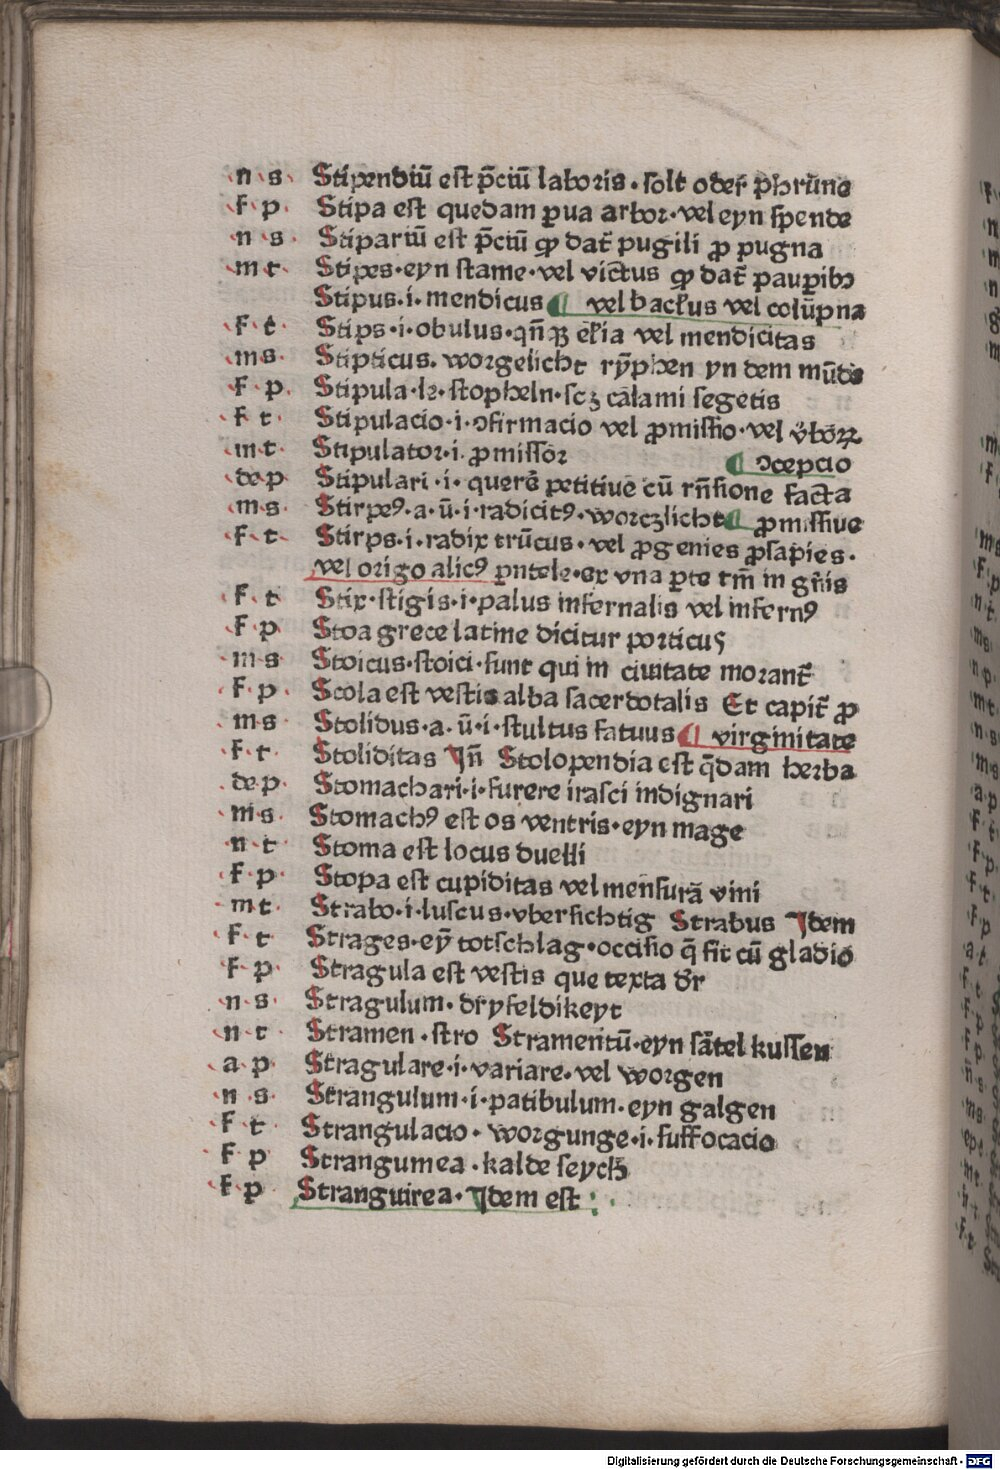 ·n·s· Stipendiū est p̄ciū laboris · solt oder phrūne
·f·p· Stipa est quedam ꝑua arbor · vel eyn spende
·n·s· Stipariū est p̄ciū qd dat̄ pugili ꝓ pugna
·m·t· Stipes · eyn stame · vel victus qd dat̄ pauꝑibꝫ
Stipus · i · mendicus ¶ vel bacl̄us vel colūpna
·f·t· Stips · i · obulus · qn̄qꝫ el̄ia vel mendicitas
·m·s· Stipticus · worgelicht rȳphen yn dem mūde
·f·p· Stipula · le · stopheln · scꝫ calami segetis
·f·t· Stipulacio · i · ꝯfirmacio vel ꝓmissio · vel v̄boꝝ
·m·t· Stipulator · i · ꝓmissor ¶ ꝯcepcio
·de·p· Stipulari · i · querē petitiue cū rn̄sione facta
·m·s· Stirpeꝰ · a · ū · i · radicitꝰ · worczlicht ¶ ꝓmissiue
·f·t· Stirps · i · radix trūcus · vel ꝓgenies ꝓsapies ·
vel origo alicꝰ ꝑntele · ex vna ꝑte tm̄ in gn̄is
·f·t· Stix · stigis · i · palus infernalis vel infernꝰ
·f·p· Stoa grece latine dicitur porticus
·m·s· Stoicus · stoici · sunt qui in ciuitate morant̄
·f·p· Stola est vestis alba sacerdotalis Et capit̄ ꝓ
·m·s· Stolidus · a · ū · i · stultus fatuus ¶ virginitate
·f·t· Stoliditas Jn̄ Stolopendia est q̄dam herba
·de·p· Stomachari · i · furere irasci indignari
·m·s· Stomachꝰ est os ventris · eyn mage
·n·t· Stoma est locus duelli
·f·p· Stopa est cupiditas vel mensurā vini
·m·t· Strabo · i · luscus · vbersichtig Strabus Jdem
·f·t· Strages · eȳ totschlag · occisio q̄ fit cū gladio
·f·p· Stragula est vestis que texta dr̄
·n·s· Stragulum · dryfeldikeyt
·n·t· Stramen · stro Stramentū · eyn sātel kussen
·a·p· Stragulare · i · variare · vel worgen
·n·s· Strangulum · i · patibulum · eyn galgen
·f·t· Strangulacio · worgunge · i · suffocacio
·f·p· Strangumea · kalde seych
·f·p· Stranguirea · Jdem est :·
Digitalisierung gefördert durch die Deutsche Forschungsgemeinschaft - DFG